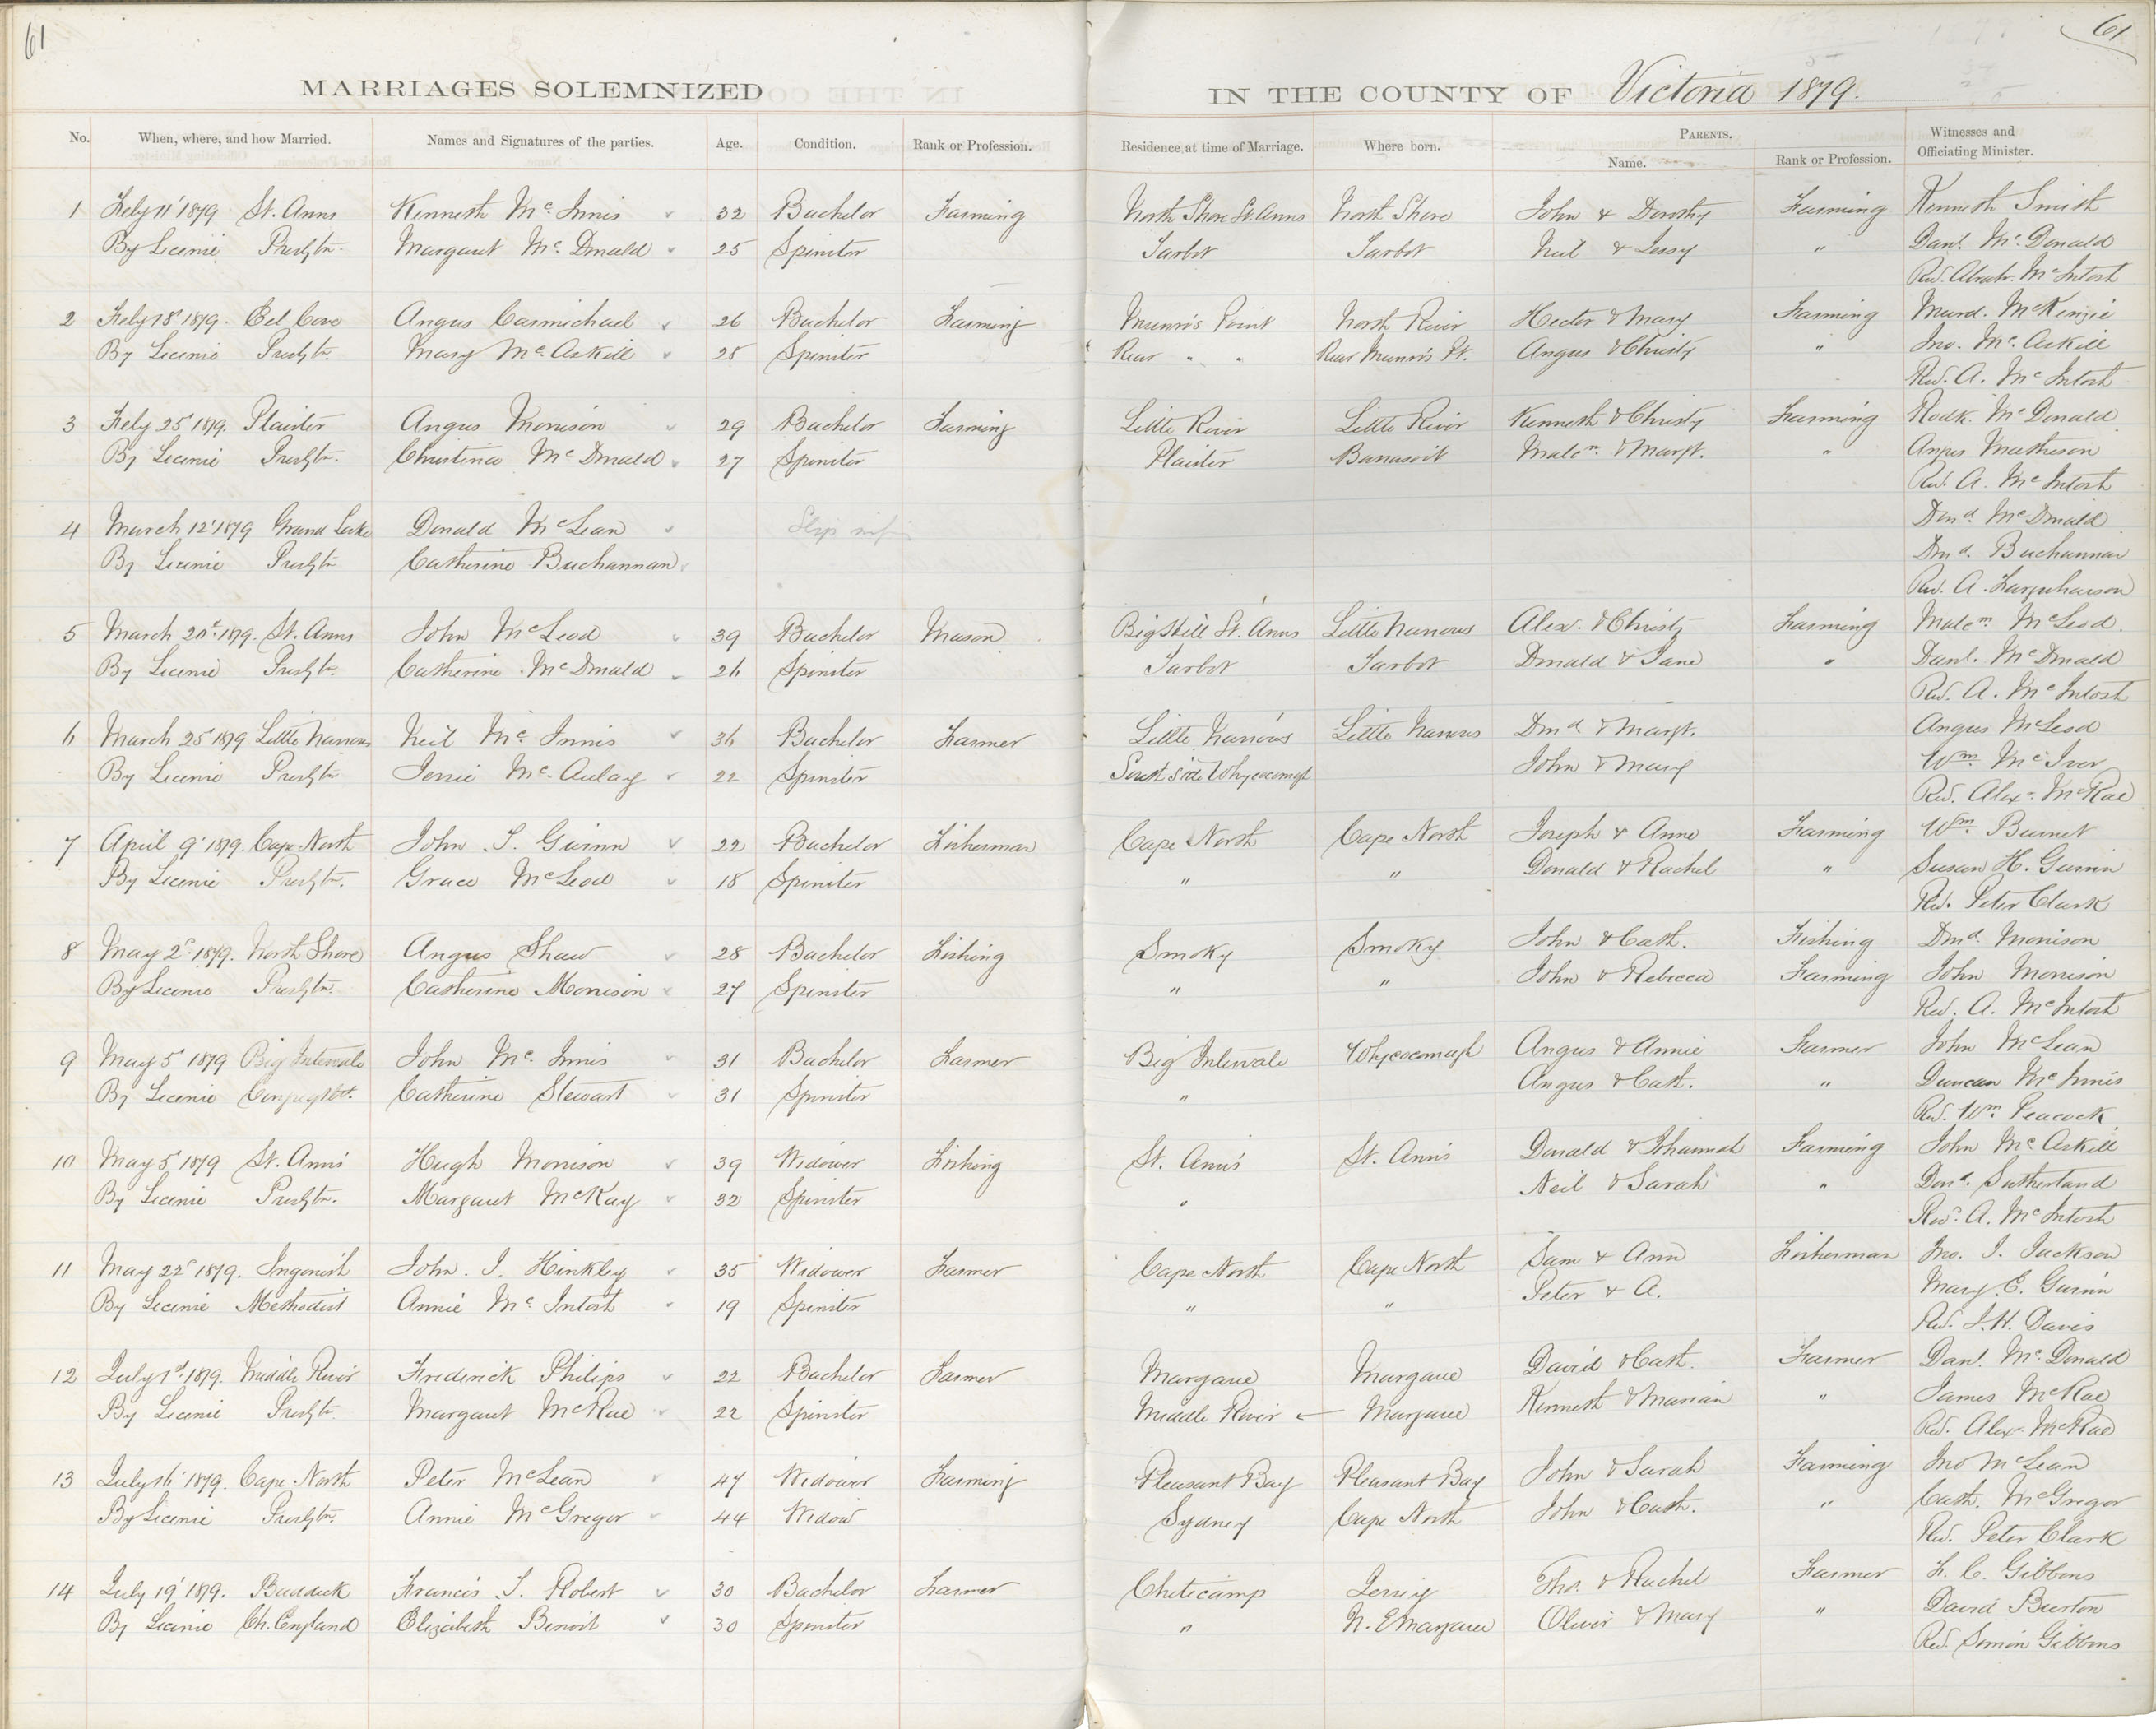 61
61
MARRIAGES SOLEMNIZED IN THE COUNTY OF Victoria 1879.
No. When, where, and how Married. Names and Signatures of the parties. Age. Condition. Rank or Profession. Residence at time of Marriage. Where born. PARENTS. Name. Rank or Profession. Witnesses and Officiating Minister.
1 Feby 11' 1879 St. Anns Kenneth Mc Innis 32 Bachelor Farming North Shore St. Anns North Shore John & Dorothy Farming Kenneth Smith
By License Presbytn. Margaret Mc Donald 25 Spinster Tarbot Tarbot Neil & Jessy " Danl. Mc Donald
Rev. Abrah. McIntosh
2 Feby 18' 1879. Eel Cove Angus Carmichael 26 Bachelor Farming Munro's Point North River Hector & Mary Farming Murd. McKenzie
By License Presbytn. Mary Mc Askill 28 Spinster Rear " " Rear Munro's Pt. Angus & Christy " Jno. Mc Askill
Rev. A. McIntosh
3 Feby 25' 1879. Plaister Angus Morrison 29 Bachelor Farming Little River Little River Kenneth & Christy Farming Rodk. McDonald
By License Presbytn. Christina McDonald 27 Spinster Plaister Malcm. & Margt. " Angus Matheson
Rev. A. McIntosh
4 March 12' 1879 Grand Lake Donald McLean Slip Dond. McDonald
By License Presbytn Catherine Buchannan Dond. Buchannan
Rev. A. Farquharson
5 March 20' 1879. St. Anns John McLeod 39 Bachelor Mason Big Hill St. Anns Little Narrows Alex. & Christy Farming Malcm. McLeod.
By License Presbytn. Catherine McDonald 26 Spinster Tarbot Tarbot Donald & Jane " Danl. McDonald
Rev. A. McIntosh
6 March 25' 1879 Little Narrows Neil Mc Innis 36 Bachelor Farmer Little Narrows Little Narrows Dond. & Margt. Angus McLeod
By License Presbytn Jessie McAulay 22 Spinster South side Whycocomagh John & Mary Wm. McIver
Rev. Alexr. McRae
7 April 9' 1879. Cape North John S. Guinn 22 Bachelor Fisherman Cape North Cape North Joseph & Anne Farming Wm. Burnet
By License Presbytn. Grace McLeod 18 Spinster " " Donald & Rachel " Susan H. Guinn
Rev. Peter Clark
8 May 2d. 1879. North Shore Angus Shaw 28 Bachelor Fishing Smoky Smoky John & Cath. Fishing Dond. Morrison
By License Presbytn. Catherine Morrison 27 Spinster " " John & Rebecca Farming John Morrison
Rev. A. McIntosh
9 May 5' 1879 Big Intervale John Mc Innis 31 Bachelor Farmer Big Intervale Whycocomagh Angus & Annie Farmer John McLean
By License Congregtst. Catherine Stewart 31 Spinster " Angus & Cath. " Duncan McInnis
Rev. Wm. Peacock
10 May 5' 1879 St. Ann's Hugh Morrison 39 Widower Fishing St. Ann's St. Ann's Donald & Johannah Farming John McAskill
By License Presbytn. Margaret McKay 32 Spinster " Neil & Sarah " Dond. Sutherland
Revd. A. McIntosh
11 May 22d 1879. Ingonish John. J. Hinkley 35 Widower Farmer Cape North Cape North Sam & Ann Fisherman Jno. J. Jackson
By License Methodist Annie McIntosh 19 Spinster " " Peter & A. Mary. E. Guinn
Rev. J. H. Davis
12 July 1st 1879. Middle River Frederick Philips 22 Bachelor Farmer Margaree Margaree David & Cath. Farmer Danl. McDonald
By License Presbytn Margaret McRae 22 Spinster Middle River Margaree Kenneth & Marian " James McRae
Rev. Alex McRae
13 July 16' 1879. Cape North Peter McLean 47 Widower Farming Pleasant Bay Pleasant Bay John & Sarah Farming Jno McLean
By License Presbytn. Annie McGregor 44 Widow Sydney Cape North John & Cath. " Cath. McGregor
Rev. Peter Clark
14 July 19' 1879. Baddeck Francis S. Robert 30 Bachelor Farmer Cheticamp Jersey Tho. & Rachel Farmer F. C. Gibbons
By License Ch. England Elizabeth Benoit 30 Spinster " N. E Margaree Oliver & Mary " David Burton
Rev. Simon Gibbons